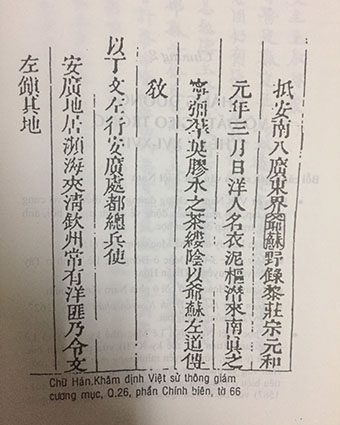 抵安南入廣東界爺蘇野錄黎莊宗元和
元年三月日洋人名衣泥樞潛來南眞之
寧彊羣英膠水之茶縷陰以爺蘇左道傳
敎
以丁文左行安廣處都總兵使
安廣地居瀕海夾清欽州常有洋匪乃令文
左鎮其地
Chữ Hán.Khâm định Việt sử thông giám
cương mục, Q.26, phần Chính biên, tờ 66